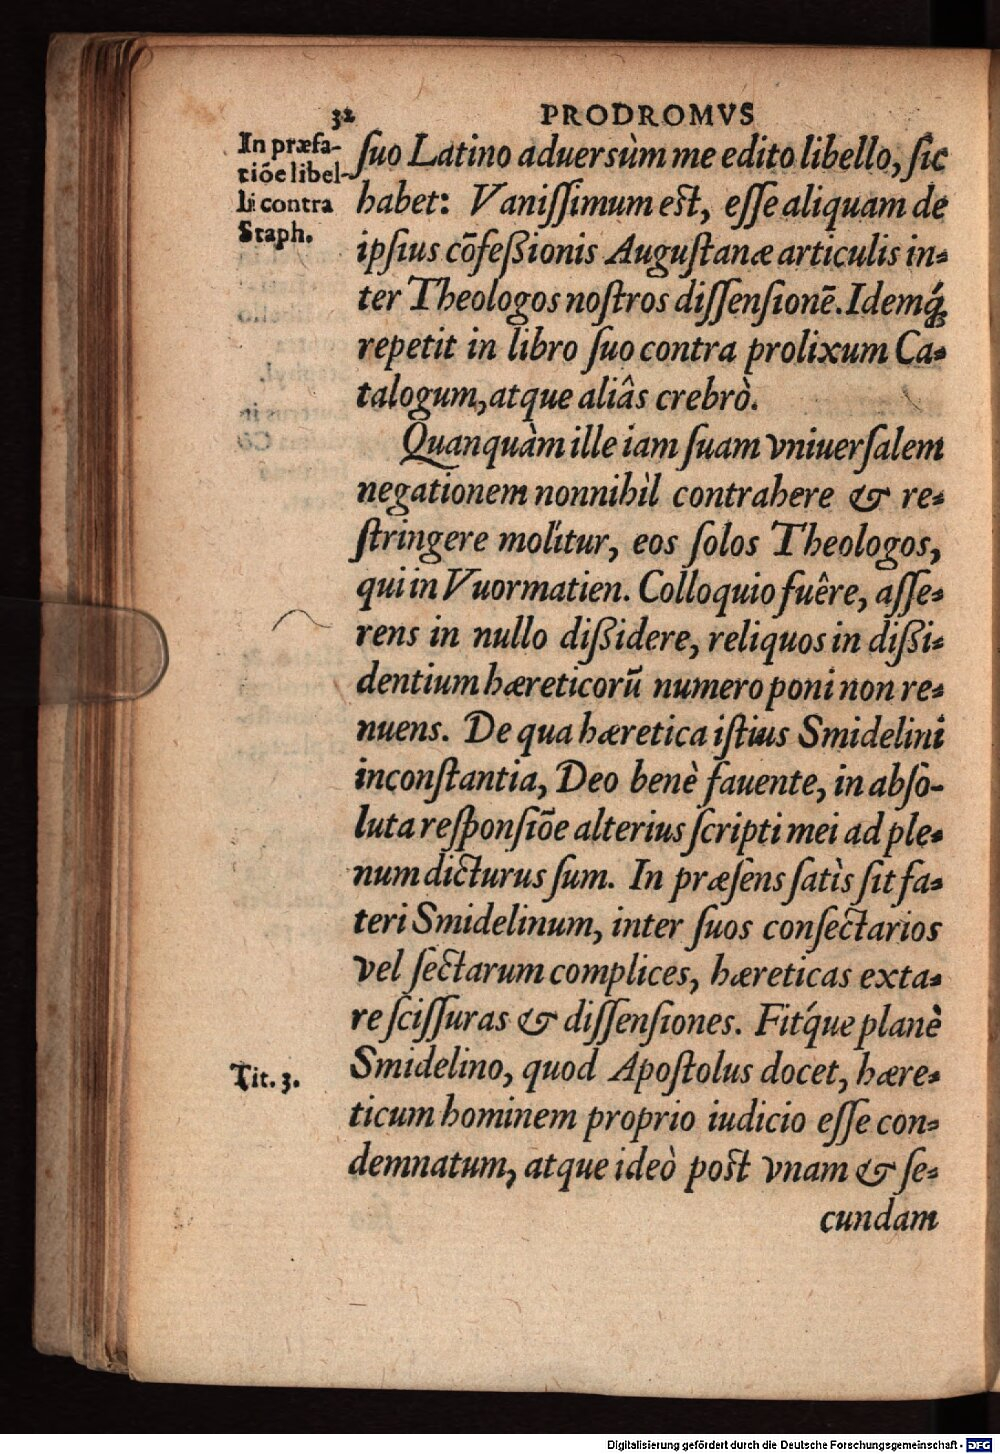 32 PRODROMVS
In præfa-
tiõe libel-
li contra
Staph.
ſuo Latino aduersùm me edito libello, ſic
habet: Vaniſſimum est, eſſe aliquam de
ipſius cõfeßionis Auguſtanæ articulis in-
ter Theologos noſtros diſſenſionẽ. Idemq́
repetit in libro ſuo contra prolixum Ca-
talogum, atque aliâs crebrò.
Quanquàm ille iam ſuam vniuerſalem
negationem nonnihìl contrahere & re-
ſtringere molitur, eos ſolos Theologos,
qui in Vuormatien. Colloquio fuêre, aſſe-
rens in nullo dißidere, reliquos in dißi-
dentium hæreticorũ numero poni non re-
nuens. De qua hæretica iſtius Smidelini
inconſtantia, Deo benè fauente, in abſo-
luta reſponſiõe alterius ſcripti mei ad ple-
num dicturus ſum. In præſens ſatìs ſit fa-
teri Smidelinum, inter ſuos conſectarios
vel ſectarum complices, hæreticas exta-
re ſciſſuras & diſſenſiones. Fit́que planè
Smidelino, quod Apoſtolus docet, hære-
Tit. 3.
ticum hominem proprio iudicio eſſe con-
demnatum, atque ideò poſt vnam & ſe-
cundam
Digitalisierung gefördert durch die Deutsche Forschungsgemeinschaft - DFG